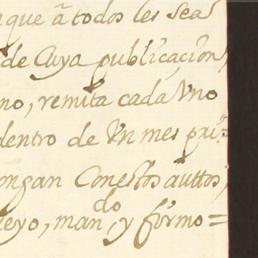 que â todos les sea
de Cuya publicación,
no, remita cada Vno
dentro de Vn mes
ongan Conestos auttos,
eyo, man,do y firmo=